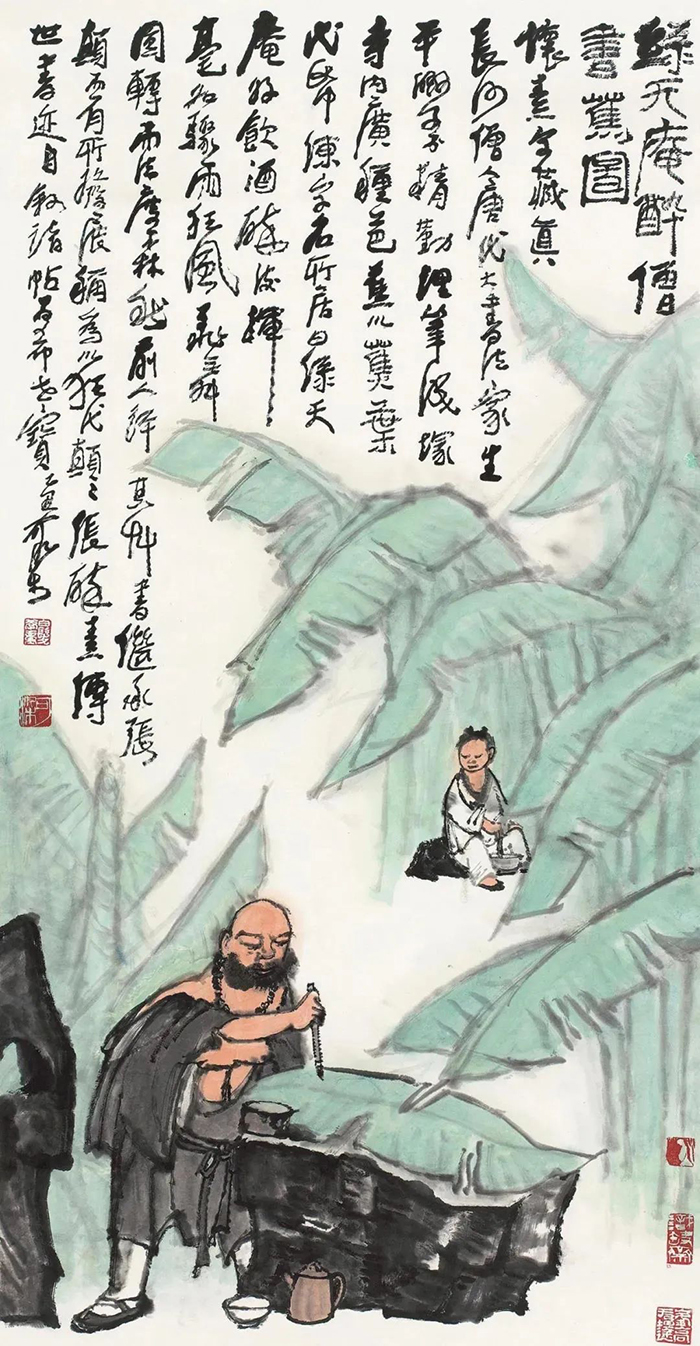 綠天庵醉僧
書蕉圖
懷素字藏真
長沙僧人唐代大書法家生
平精勤埋筆成塚
寺内廣種芭蕉以蕉葉
代帋練字名所居曰綠天
庵好飲酒醉後揮
毫如驟雨狂風飛舞
圓轉而法度森然前人評其艸書繼承張
顛而有所發展稱為以狂代顛顛張醉素傳
世書迹自敘諸帖為希世寶